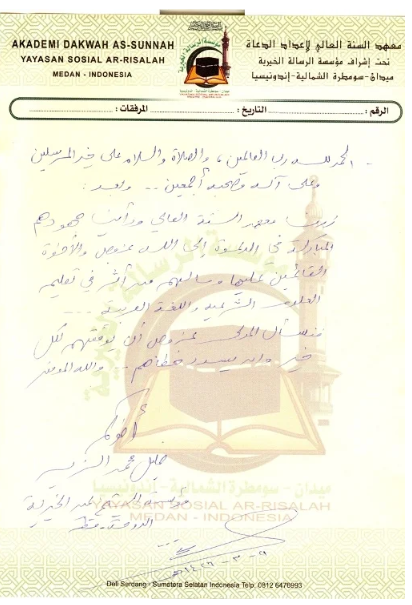 AKADEMI DAKWAH AS-SUNNAH
YAYASAN SOSIAL AR-RISALAH
MEDAN - INDONESIA
معهد السنة العالي لإعداد الدعاة
تحت إشراف مؤسسة الرسالة الخيرية
ميدان-سومطرة الشمالية-إندونيسيا
الرقم : التاريخ : المرفقات :
الحمد لله رب العالمين، والصلاة والسلام على خير المرسلين
وعلى آله وصحبه أجمعين .. وبعد :
زرنا معهد السنة العالي ورأينا جهودهم
المباركة في الدعوة إلى الله عز وجل والأخوة
القائمين عليها وما لهم من أثر في تعليم
العلوم الشرعية واللغة العربية ...
نسأل المولى عز وجل أن يوفقهم لكل
خير وأن يسدد خطاهم .. والله الموفق
أخوكم
محمد
الخيرية
الدوحة - قطر
ميدان - سومطرة الشمالية - إندونيسيا
YAYASAN SOSIAL AR-RISALAH
MEDAN - INDONESIA
Deli Serdang - Sumatera Selatan Indonesia Telp. 0812 6476993